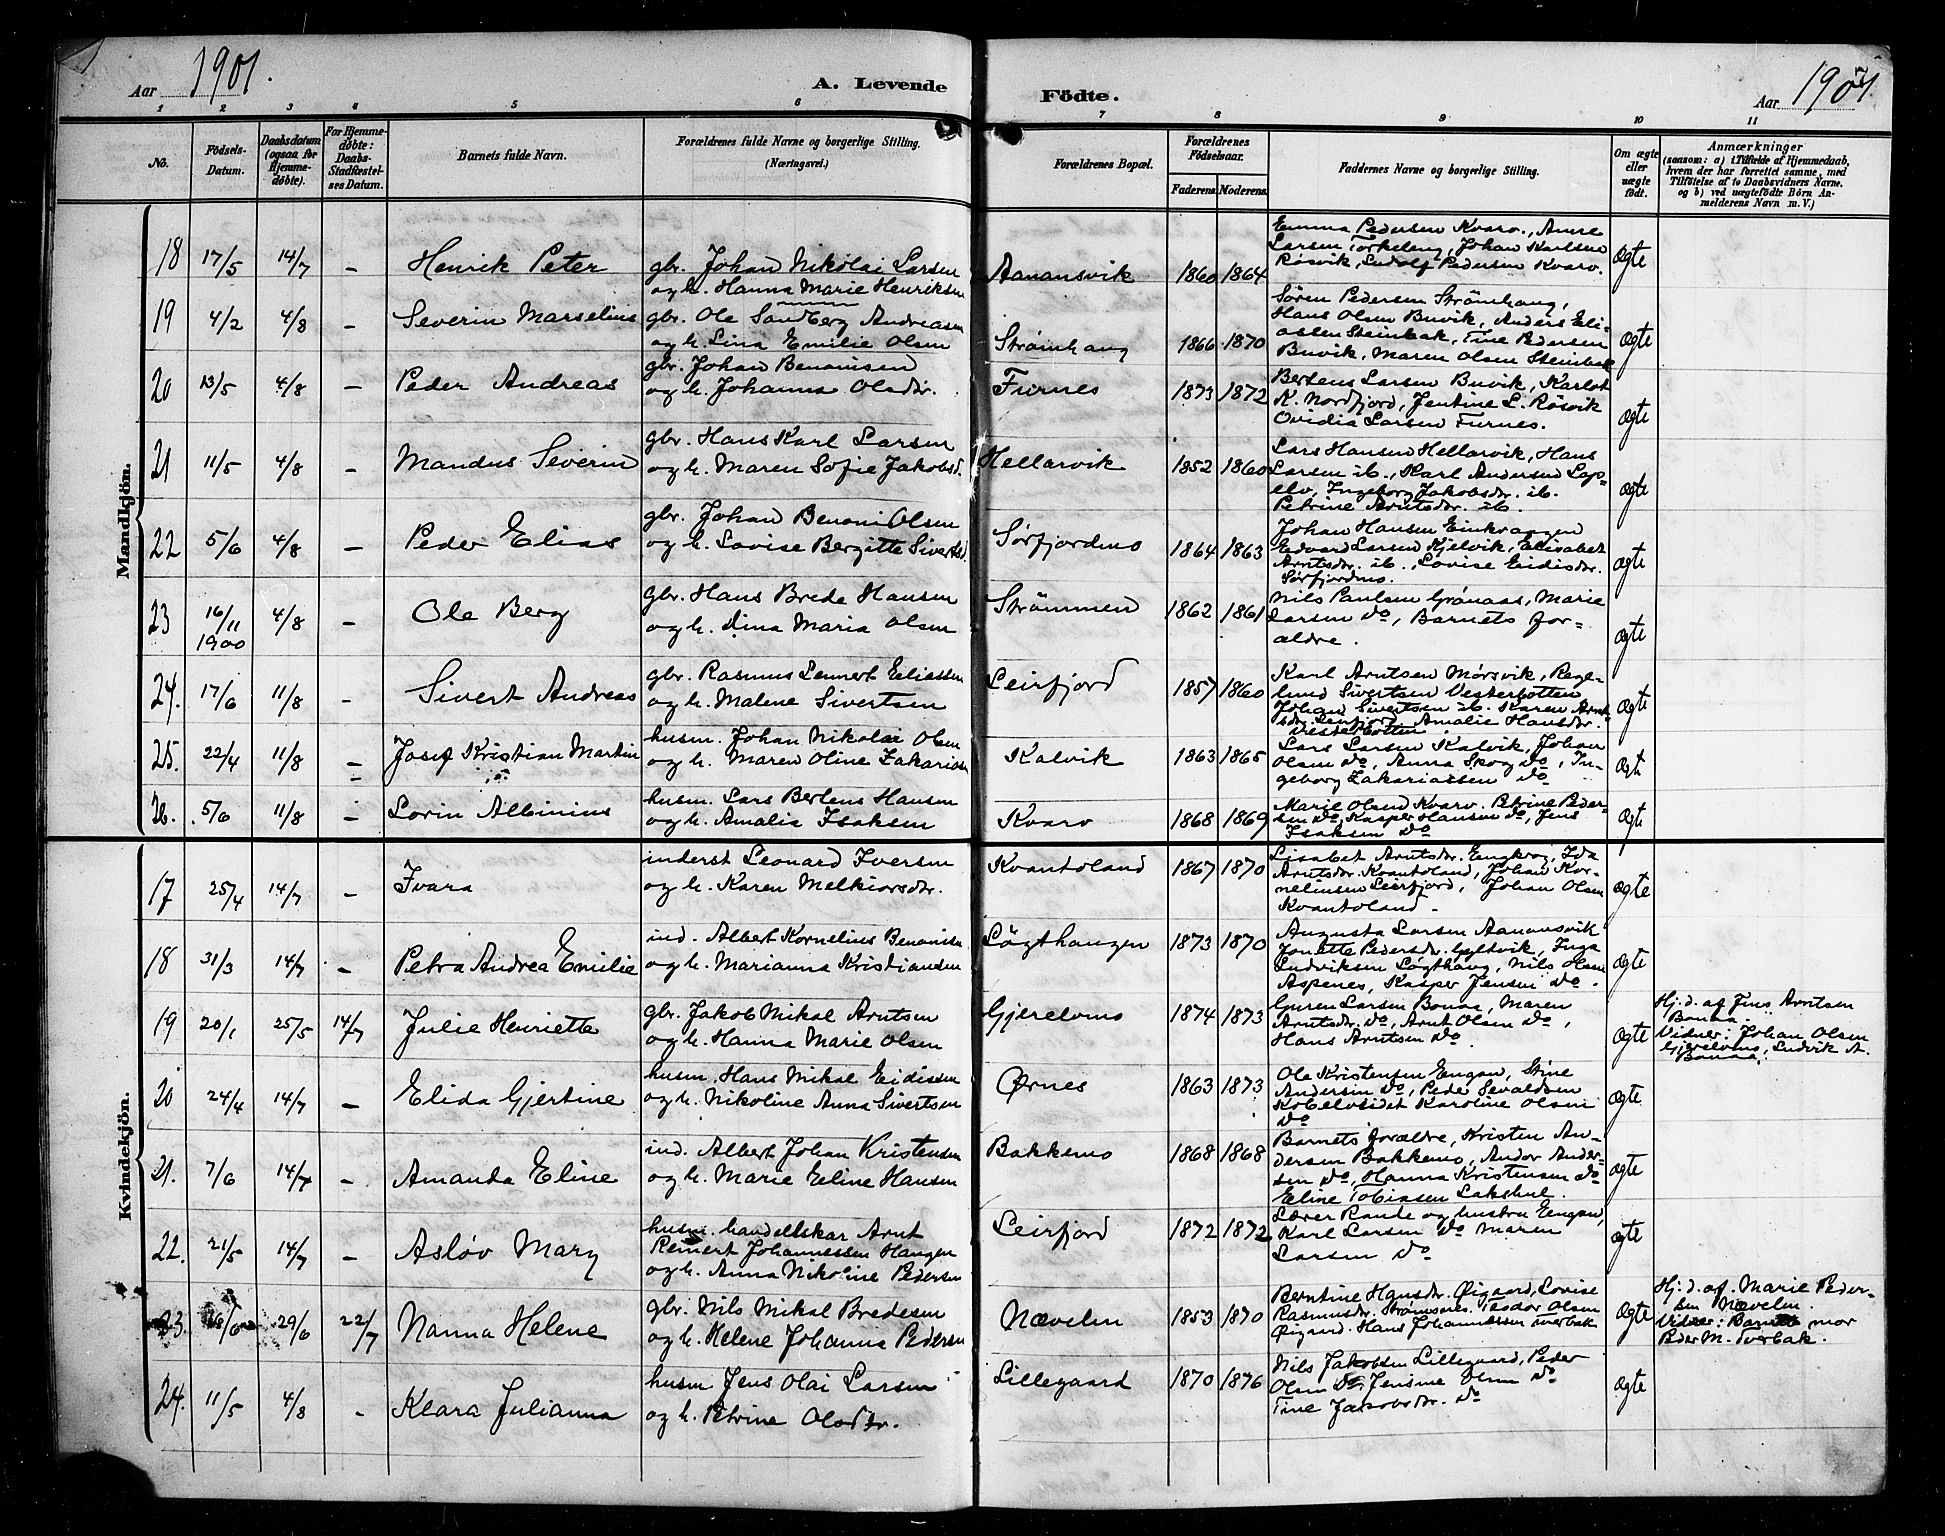 Aar 1901.
A. Levende
Födte.
Aar 1901.
1 2 3 4 5 6 7 8 9 10 11
No.
Födsels-Datum.
Daabsdatum (ogsaa for Hjemme-døbte).
For Hjemme-døbte: Daabs-Stadfæstel-ses Datum.
Barnets fulde Navn.
Forældrenes fulde Navne og borgerlige Stilling. (Næringsvei.)
Forældrenes Bopæl.
Forældrenes Födselsaar.
Faderens. Moderens.
Faddernes Navne og borgerlige Stilling.
Om ægte eller uægte födt.
Anmærkninger
(saasom: a) i Tilfælde af Hjemmedaab,
hvem der har forrettet samme, med
Tilföielse af to Daabsvidners Navne.
og b) ved uægtefödte Börn An-
melderens Navn m. V.)
Mandkjön.
18 17/5 14/7 – Henrik Peter
gbr. Johan Nikolai Larsen
og h. Hanna Marie Henriksen
Aanansvik 1860 1864
Emma Pedersen Kvarv., Anne
Larsen Torkeleng, Johan Karlsen
Røsvik, Ludolf Pedersen Kvarv.
Ægte
19 4/2 4/8 – Severin Marselius
gbr. Ole Sandberg Andreasen
og h. Lina Emilie Olsen
Strömhaug 1866 1870
Sören Pedersen Strömhaug,
Hans Olsen Buvik, Anders Eli-
assen Steinbak, Tine Pedersen
Buvik, Maren Olsen Steinbak
Ægte
20 13/5 4/8 – Peder Andreas
gbr. Johan Benonisen
og h. Johanna Olsdr.
Furnes 1873 1872
Bertens Larsen Buvik, Karlot
K. Nordfjord, Jentine L. Røsvik
Ovidia Larsen Furnes.
Ægte
21 11/5 4/8 – Mandus Severin
gbr. Hans Karl Larsen
og h. Maren Sofie Jakobsd.
Hellarvik 1852 1860
Lars Hansen Hellarvik, Hans
Larsen ib., Karl Andersen Lap-
elv, Ingeborg Jakobsdr. ib.
Petrine Arntsdr. ib.
Ægte
22 5/6 4/8 – Peder Elias
gbr. Johan Benoni Olsen
og h. Lovise Bergitte Sivertsd.
Sørfjordmo 1864 1863
Johan Hansen Einkroagen
Edvard Larsen Kjelvik, Elisabet
Arntsdr. ib., Lovise Eidisdr.
Sørfjordmo.
Ægte
23 16/11 1900 4/8 – Ole Berg
gbr. Hans Brede Hansen
og h. Dina Maria Olsen
Strömmen 1862 1861
Nils Paulsen Grönaas, Marie
Larsen do, Barnets for-
ældre.
Ægte
24. 17/6 11/8 – Sivert Andreas
gbr. Rasmus Lennert Eliassen
og h. Malene Sivertsen
Leirfjord 1857 1860
Karl Arntsen Mörsvik, Rege-
lund Sivertsen Vesterbotten
Johan Sivertsen ib. Karen Arnt-
sdr. Leirfjord, Amalie Hansdr.
Vesterbotten.
Ægte
25. 22/4 11/8 – Josef Kristian Martin
husm. Johan Nikolai Olsen
og h. Maren Oline Zakariasen
Kalvik 1863 1865
Lars Larsen Kalvik, Johan
Olsen do, Anna Skog do, In-
geborg Zakariassen do
Ægt
26. 5/6 11/8 – Lorin Albinius
husm. Lars Bertens Hansen
og h. Amalia Isaksen
Kvarv 1868 1869
Marie Olsen Kvarv. Petrine Peder-
sen do, Kasper Hansen do, Jens
Isaksen do
Ægte
Kvindekjön.
17 25/4 14/7 – Ivara
inderst Leonard Iversen
og h. Karen Melkiorsdr.
Kvantoland 1867 1870
Lisabet Arntsdr. Engkrog, Ida
Arntsdr. Kvantoland, Johan Kor-
neliusen Leirfjord, Johan Olsen
Kvantoland.
Ægte
18 31/3 14/7 – Petra Andrea Emilie
ind. Albert Kornelius Benonisen
og h. Marianna Kristiansen
Løgthaugen 1873 1870
Augusta Larsen Aanansvik
Jonette Pedersdr. Gyltvik, Inga
Ludviksen Løgthaug, Nils Olsen
Aspenes, Kasper Jensen do.
Ægte
19 20/1 25/5 14/7 Julie Henriette
gbr. Jakob Mikal Arntsen
og h. Hanna Marie Olsen
Gjerelvmo 1874 1873
Guren Larsen Bonaa, Maren
Arntsdr. do, Arnt Olsen do,
Hans Arntsen do.
Ægte
Hj. d. af Jens Arntsen
Bonaa.
Vidner: Johan Olsen
Gjerelvmo, Ludvik A.
Bonaa.
20 24/4 14/7 – Elida Gjertine
husm. Hans Mikal Eidissen
og h. Nikoline Anna Sivertsen
Ørnes 1863 1873
Ole Kristensen Engan, Stine
Andersen do, Peder Sevaldsen
Kobelvsidet Karoline Olsen
do
Ægte
21. 7/6 14/7 – Amanda Eline
ind. Albert Johan Kristensen
og h. Marie Eline Hansen
Bakkemo 1868 1868
Barnets forældre, Kristen An-
dersen Bakkemo, Andor Ander-
sen do, Hanna Kristensen do
Eline Tobiasen Lakshul.
Ægte
22. 21/5 14/7 – Asløv Mary
husm. handelskar Arnt
Reinert Johannessen Haugen
og h. Anna Nikoline Pedersen
Leirfjord 1872 1872
Lærer Rande og hustru Engan,
Karl Larsen do Maren
Larsen do
Ægte
23. 16/6 29/6 22/7 Nanna Helene
gbr. Nils Mikal Bredesen
og h. Helene Johanna Pedersen
Nævelm 1853 1870
Berntine Hansdr. Øigaard, Lovise
Rasmusdr. Strømsnes, Teodor Olsen
Øigaard. Hans Johannessen Tverbak
Ægte
Hj. d. af. Marie Peder-
sen Nævelm.
Vidner: Barnets mor
Peder M. Tverbak.
24. 11/5 4/8 – Klara Julianna
husm Jens Olai Larsen
og h. Petrine Olsdr.
Lillegaard 1870 1876
Nils Jakobsen Lillegaard, Peder
Olsen do, Jensine Olsen do
Tine Jakobsdr. do
Ægte